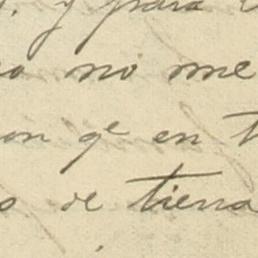 y para
no me
on qe en
de tierra